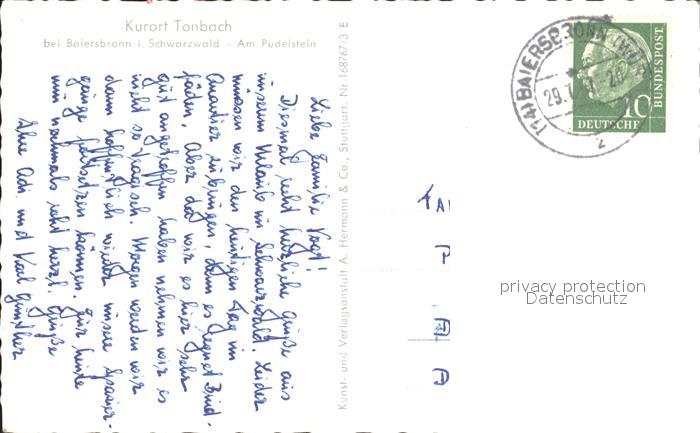 Kurort Tonbach
bei Baiersbronn i. Schwarzwald - Am Pudelstein
Liebe Familie Vogt!
Diesmal recht herzliche Grüße aus
unserem Urlaub im Schwarzwald. Leider
müssen wir den heutigen Tag im
Quartier verbringen, denn es regnet Bind-
fäden. Aber da wir es hier sehr
gut angetroffen haben nehmen wir es
nicht so tragisch. Morgen werden wir
dann hoffentlich wieder unsere Spazier-
gänge fortsetzen können. Für heute
nun nochmals recht herzl. Grüße
Ihre Adi. und Karl Günther
Kunst- und Verlagsanstalt A. Hermann & Co., Stuttgart. Nr. 168767/3 E
(14b) BAIERSBRONN
29.7.
z
10
DEUTSCHE
BUNDESPOST
privacy protection
Datenschutz